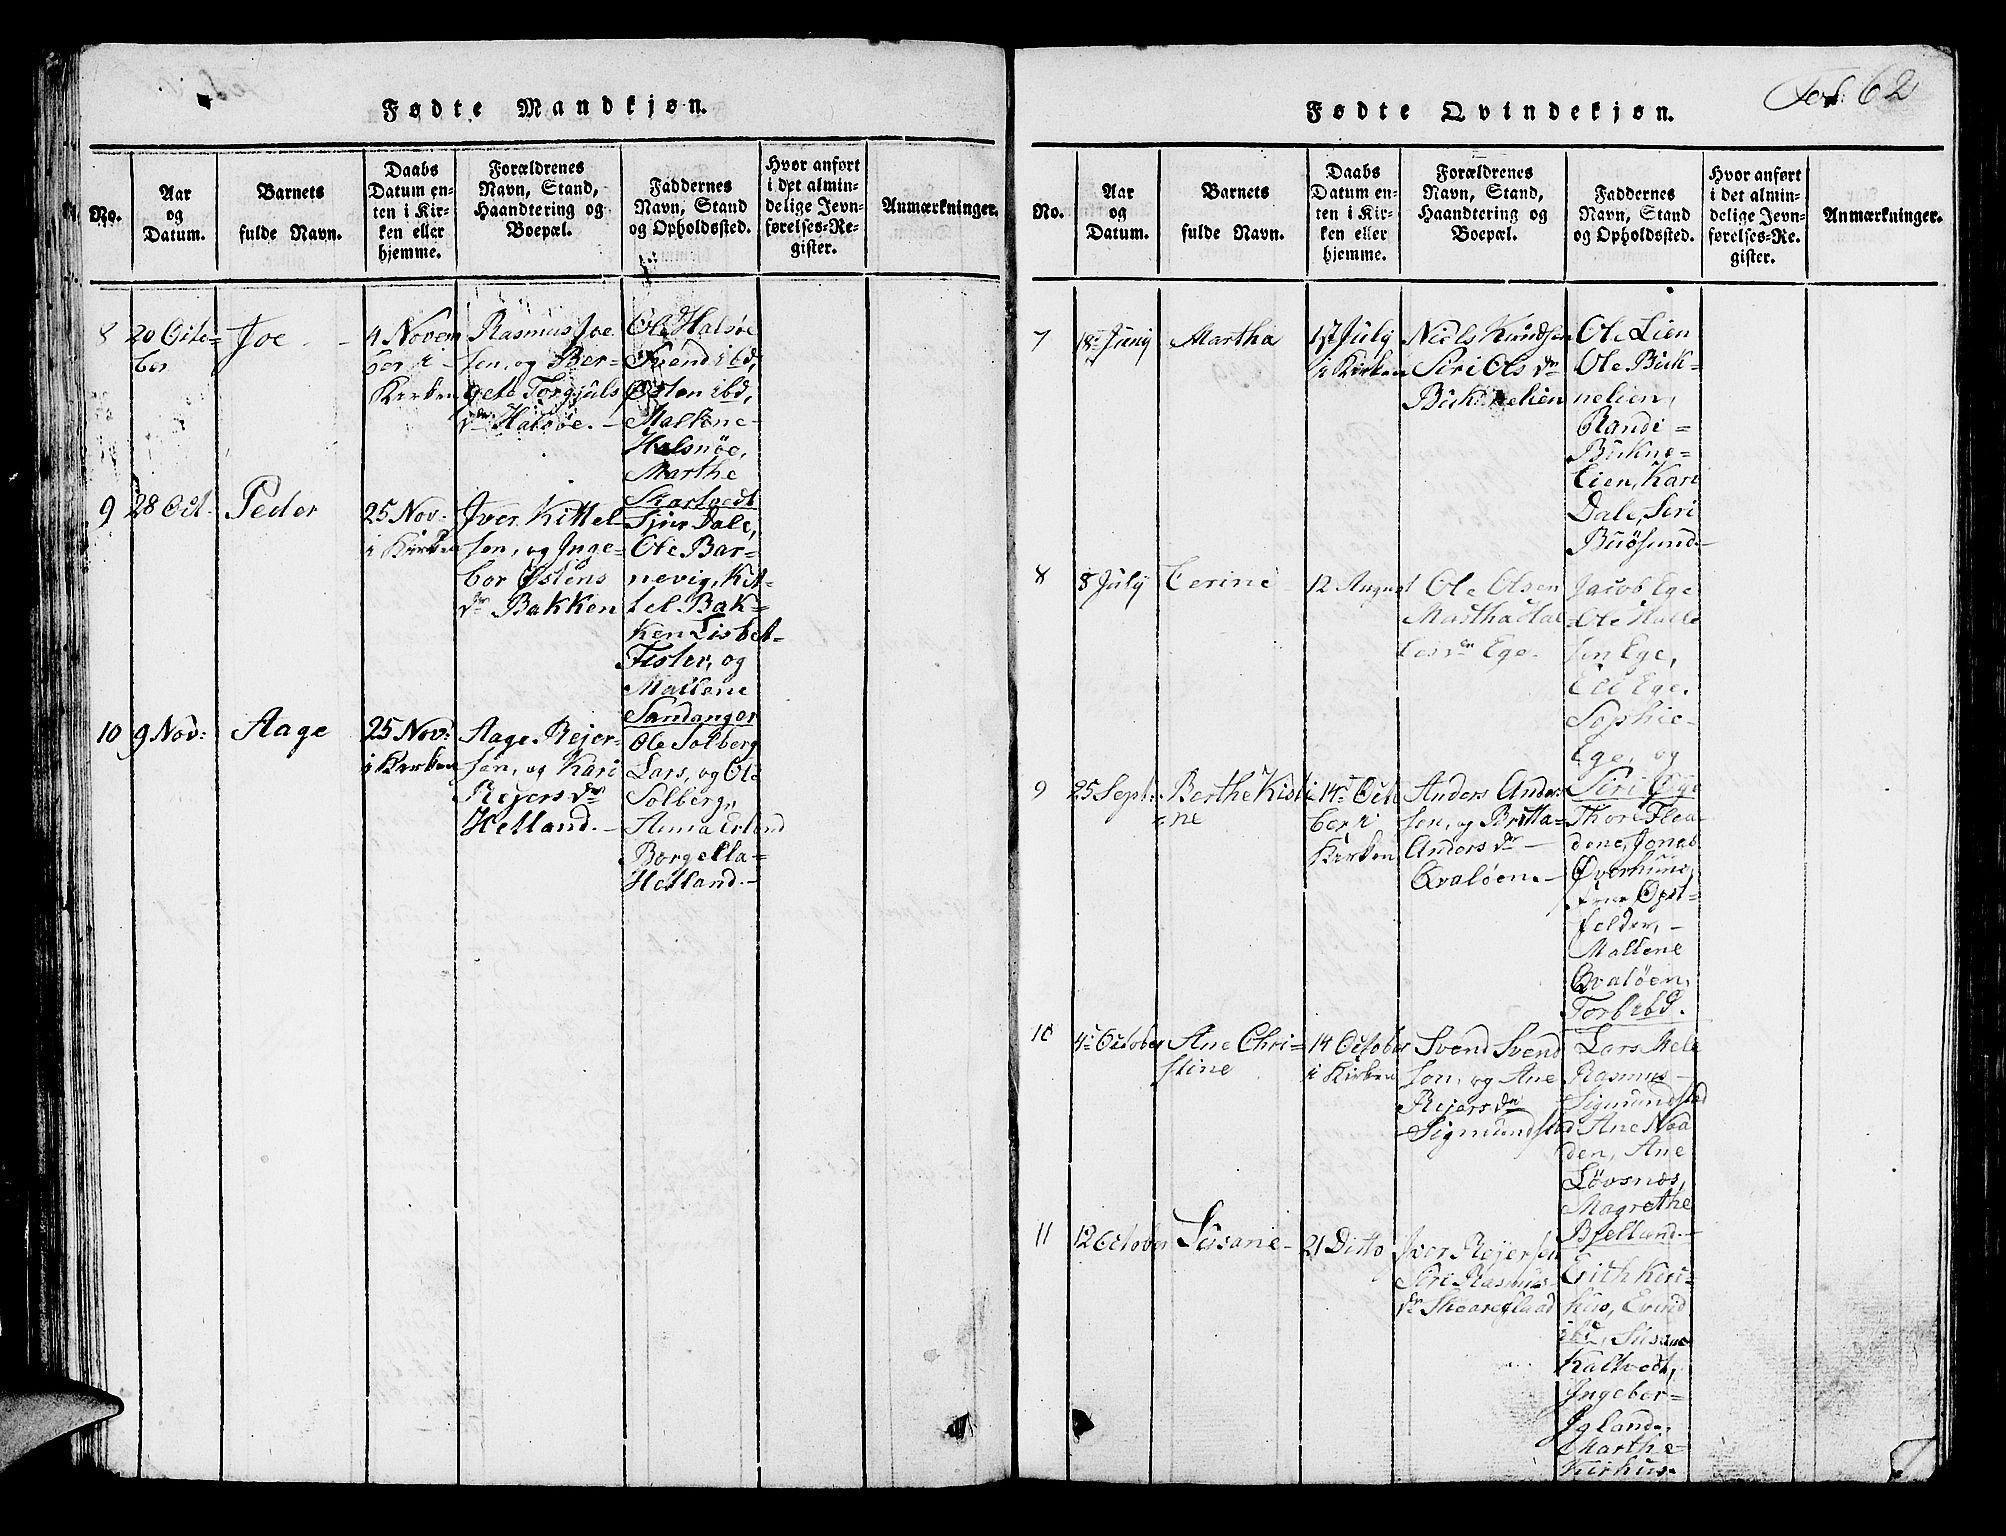 Fødte Mandkjøn.
No.
Aar
og
Datum.
Barnets
fulde Navn.
Daabs
Datum en-
ten i Kir-
ken eller
hjemme.
Forældrenes
Navn, Stand,
Haandtering og
Boepæl.
Faddernes
Navn, Stand
og Opholdssted.
Hvor anført
i det almin-
delige Jevn-
førelses-Re-
gister.
Anmærkninger.
8
20 Octo-
ber
Joe
4 Novem
ber i
Kirken
Rasmus Joe
sen, og Ber-
gete Torgjuls
dr Halsøe.
Ole Halsøe
Svend ibd,
Østen ibd,
Mallene
Halsnøe,
Marthe
Skartvedt
9
28 Oct.
Peder
25 Nov.
i Kirken
Iver Kittel
sen, og Inge-
bor Østens
dr Bakken
Sjur Dale,
Ole Bar-
nevig, Kit-
tel Bak-
ken Lisbet
Fister, og
Mallene
Sandanger
10
9 Nov:
Aage
25 Nov:
i Kirken
Aage Rejer-
sen, og Kari
Rejers dr
Helland.
Ole Solberg
Lars, og Ole
Solberg,
Anna Erland
Borgella
Helland.
Fol: 62
Fødte Qvindekjøn.
No.
Aar
og
Datum.
Barnets
fulde Navn.
Daabs
Datum en-
ten i Kir-
ken eller
hjemme.
Forældrenes
Navn, Stand,
Haandtering og
Boepæl.
Faddernes
Navn, Stand
og Opholdssted.
Hvor anført
i det almin-
delige Jevn-
førelses-Re-
gister.
Anmærkninger.
7
18 Juny
Martha
1st July
i Kirken
Niels Knudsen
Siri Ols dr
Buknelien
Ole Lien
Ole Buk-
nelien,
Randi
Bukne-
lien, Kari
Dale, Siri
Buøsund
8
8 July
Cerine
12 August
Ole Olsen
Martha Hal
Ege.
Jacob Ege
Ole Halle
sen Ege,
Eli Ege.
Sophie
Ege, og
Siri Ege
9
25 Sept.
Berthe Kisti
ne
14 Octo
ber i
Kirken
Anders Ander-
sen, og Britta
Anders dr
Qvaløen.
Thore Floa
dene, Jonas
Øverhuus,
Opst-
felder,
Mallene
Qvaløen,
Torb ibd.
10
4 October
Ane Chri-
stine
14 October
i Kirken
Svend Svend
sen, og Ane
Rejers dr
Sigmundstad
Lars Mele
Rasmus
Sigmundstad
Ane Noa
den, Ane
Løvsnæs,
Magrethe
Bjelland.
11
12 October
Susane
21 Ditto
Iver Rejersen
Siri Rasmus
dr Skaareflaad
Erich Kirk-
huus, Evind
ibd, Susane
Kaltvedt,
Ingebor
Igland,
Marthe
Kirhus.